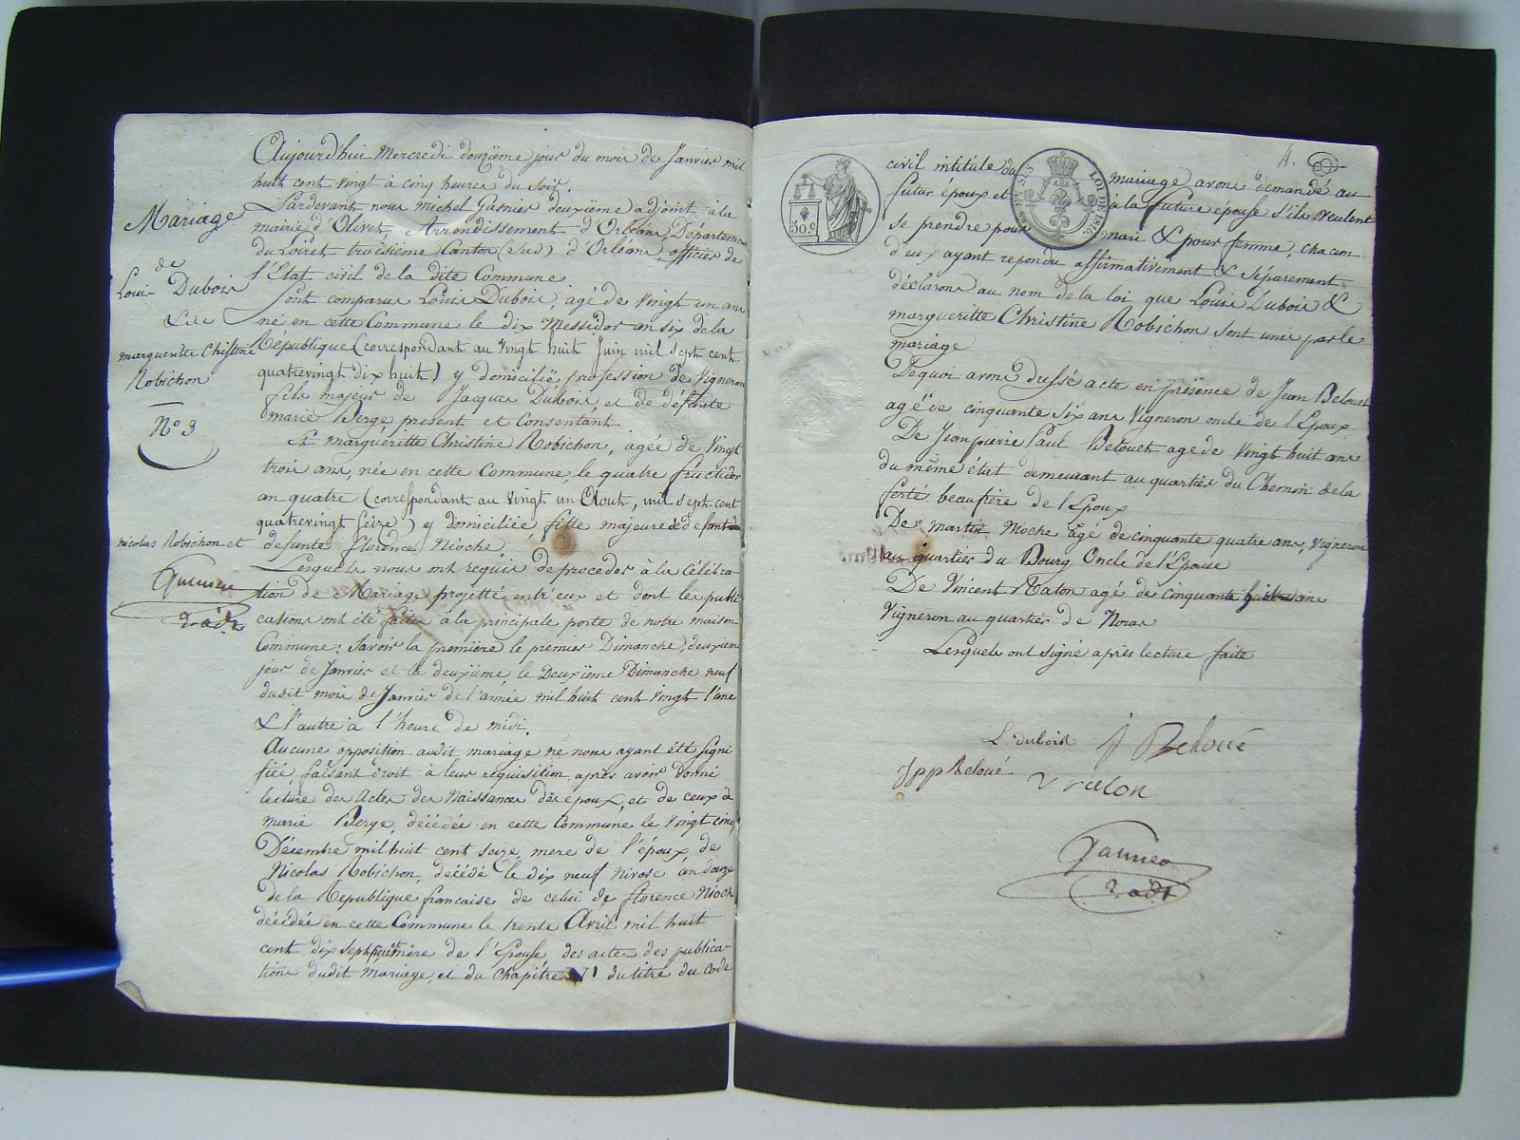 Mariage
de
Louis Dubois
& de
marguerite Christine
Robichon
N° 3
nicolas Robichon et
2e adjt
Aujourd'hui Mercredi douzième jour du mois de Janvier mil
huit cent vingt à cinq heures du soir.
Pardevant nous michel Garnier deuxième adjoint à la
mairie d'Olivet, Arrondissement d'Orléans, Département
du Loiret, troisième Canton (Sud) d'Orléans, officier de
l'Etat civil de la dite Commune
Sont comparus Louis Dubois, agé de vingt un ans
né en cette Commune le dix Messidor an six de la
République (correspondant au vingt huit Juin mil sept cent
quatrevingt dix huit) y domicilié, profession de Vigneron
fils majeur de Jacques Dubois, et de défunte
marie Berge, present et Consentant.
Et marguéritte Christine Robichon, agée de vingt
trois ans, née en cette Commune, le quatre fructidor
an quatre (correspondant au vingt un Aout, mil sept cent
quatrevingt seize) y domiciliée, fille majeure de defunt
defunte florence Nioche.
Lesquels nous ont requis de proceder à la célébra-
tion de Mariage projetté entr'eux et dont les publi
cations ont été faites à la principale porte de notre maison
Commune: Savoir la première le premier Dimanche, deuxième
jour de Janvier et la deuxième le Deuxième Dimanche neuf
dudit mois de Janvier de l'année mil huit cent vingt l'une
& l'autre à l'heure de midi.
Aucune opposition audit mariage ne nous ayant été signi
fiée, faisant droit à leur réquisition, après avoir donné
lecture des Actes de Naissances des époux, et de ceux de
marie Berge, décédée en cette Commune le vingt cinq
Décembre mil huit cent seize mere de l'époux, de
Nicolas Robichon, décédé le dix neuf nivose an douze
de la Republique francaise de celui de florence Nioche
décédée en cette Commune le trente Avril mil huit
cent dix sept, mère de l'Epouse, des actes des publica-
tions dudit mariage, et du chapitre VI du titre du Code
4.
50 c
civil intitulé du mariage avons demandé au
futur époux et à la future épouse s'ils veulent
se prendre pour mari & pour femme, chacun
d'eux ayant repondu affirmativement & séparement.
déclarons au nom de la loi que Louis Dubois &
margueritte Christine Robichon sont unis par le
mariage
De quoi avons dressé acte en présence de Jean Beloust
agé de cinquante six ans Vigneron oncle de l'Epoux.
De Jean pierre Paul Belouet agé de vingt huit ans
du même état demeurant au quartier du Chemin de la
ferté beaufrère de l'Epoux
De martin Nioche agé de cinquante quatre ans, Vigneron
au quartier du Bourg Oncle de l'Epouse
De Vincent Raton agé de cinquante huit ans
Vigneron au quartier de Noras
Lesquels ont signé après lecture faite
L. dubois J Beloué
Jpp Beloué
V raton
Garnier
2. adjt